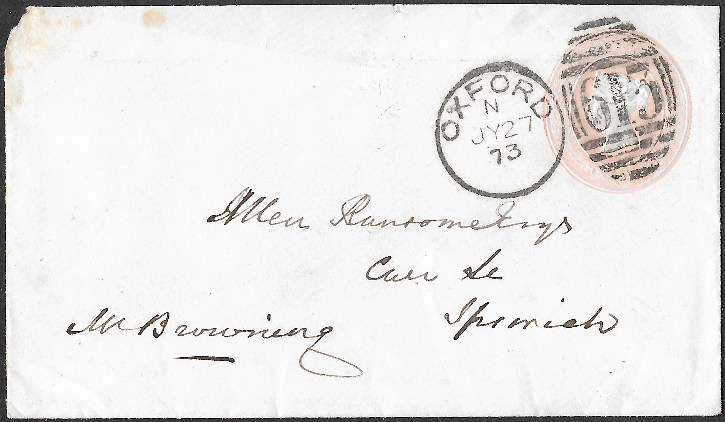 OXFORD
N
JY 27
73
613
Allen Ransome Esqr
Carr St
Ipswich
Mr Browning